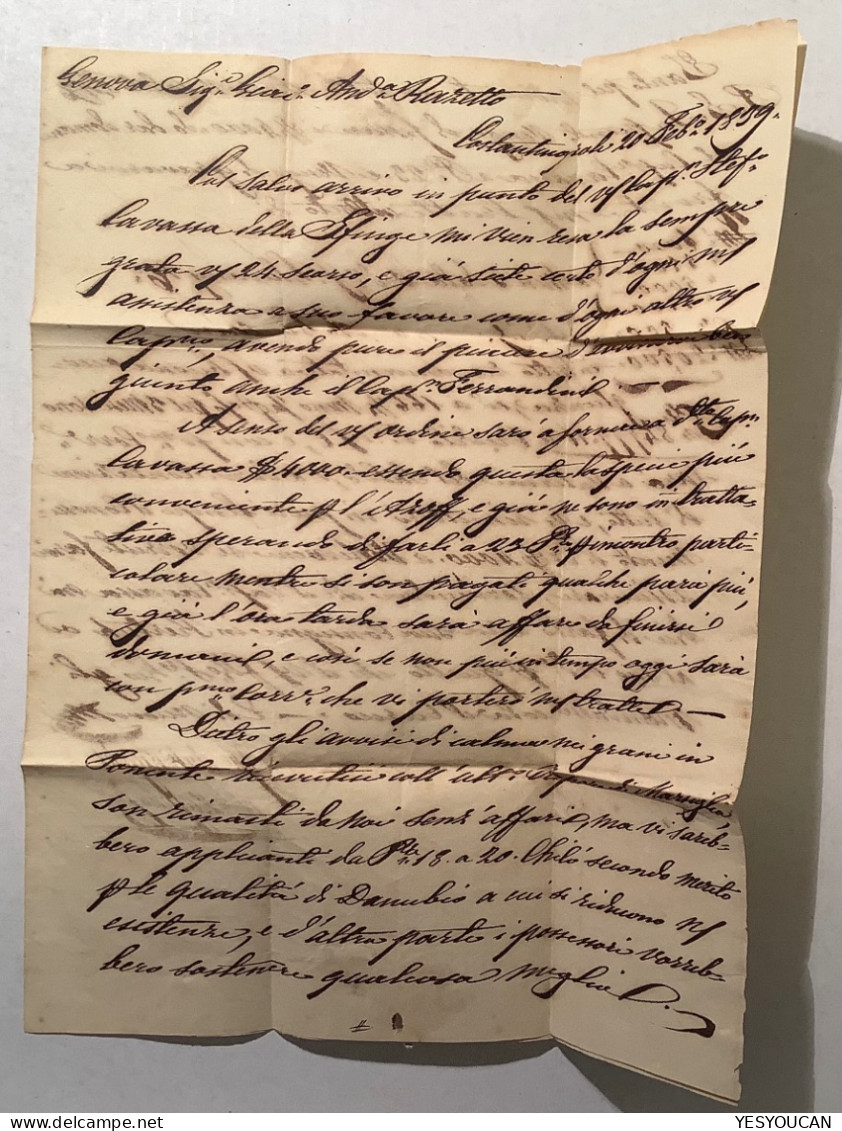 Genova Sig.i Giac.o And.a Razetto
Costantinopoli 20 Feb.o 1859.
Col salvo arrivo in punto del Cap.n Stef.o
Cavassa della Sfinge mi vien resa la sempre
grata 24 scorso, e già siate certo d'ogni
assistenza a suo favore come d'ogni altro
Cap.no, avendo pure il piacere d'
giunto anche il Cap.n Ferrandi
A senso del ordine sarò a fornire a Cap.n
Cavassa 4000. essendo questa la specie più
conveniente l' e già ne sono in tratta-
tiva sperando di farli a 23 incontro parti-
colare mentre si son pagati qualche parà più,
e già l'ora tarda sarà affare da finirsi
domani, e così se non più in tempo oggi sarà
con p.mo Corr.e che vi porterò
Dietro gli avvisi di calma nei grani in
Ponente ricevuti coll' ult.o Vapore di Marsiglia
son rimasti da noi senz' affari, ma vi sareb-
bero applicanti da 18. a 20. Chilò secondo merito
le qualità di Danubio a cui si riducono
esistenze, e d'altra parte i possessori vorreb-
bero sostenere qualcosa meglio.
YESYOUCAN